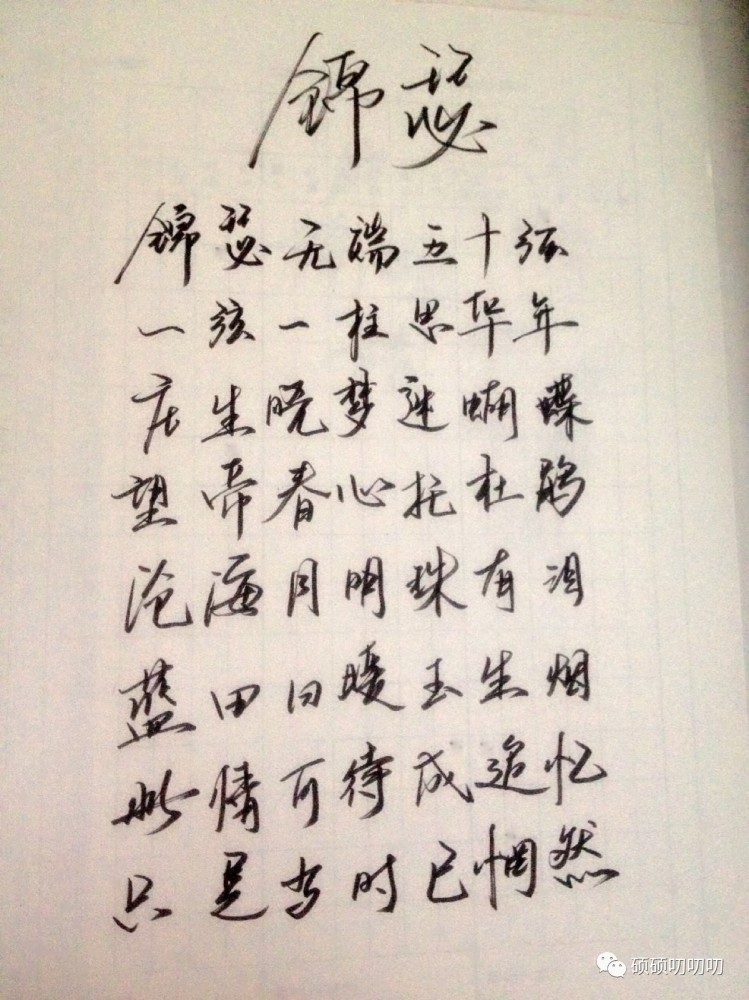 锦瑟
锦瑟无端五十弦
一弦一柱思华年
庄生晓梦迷蝴蝶
望帝春心托杜鹃
沧海月明珠有泪
蓝田日暖玉生烟
此情可待成追忆
只是当时已惘然
硕硕叨叨叨